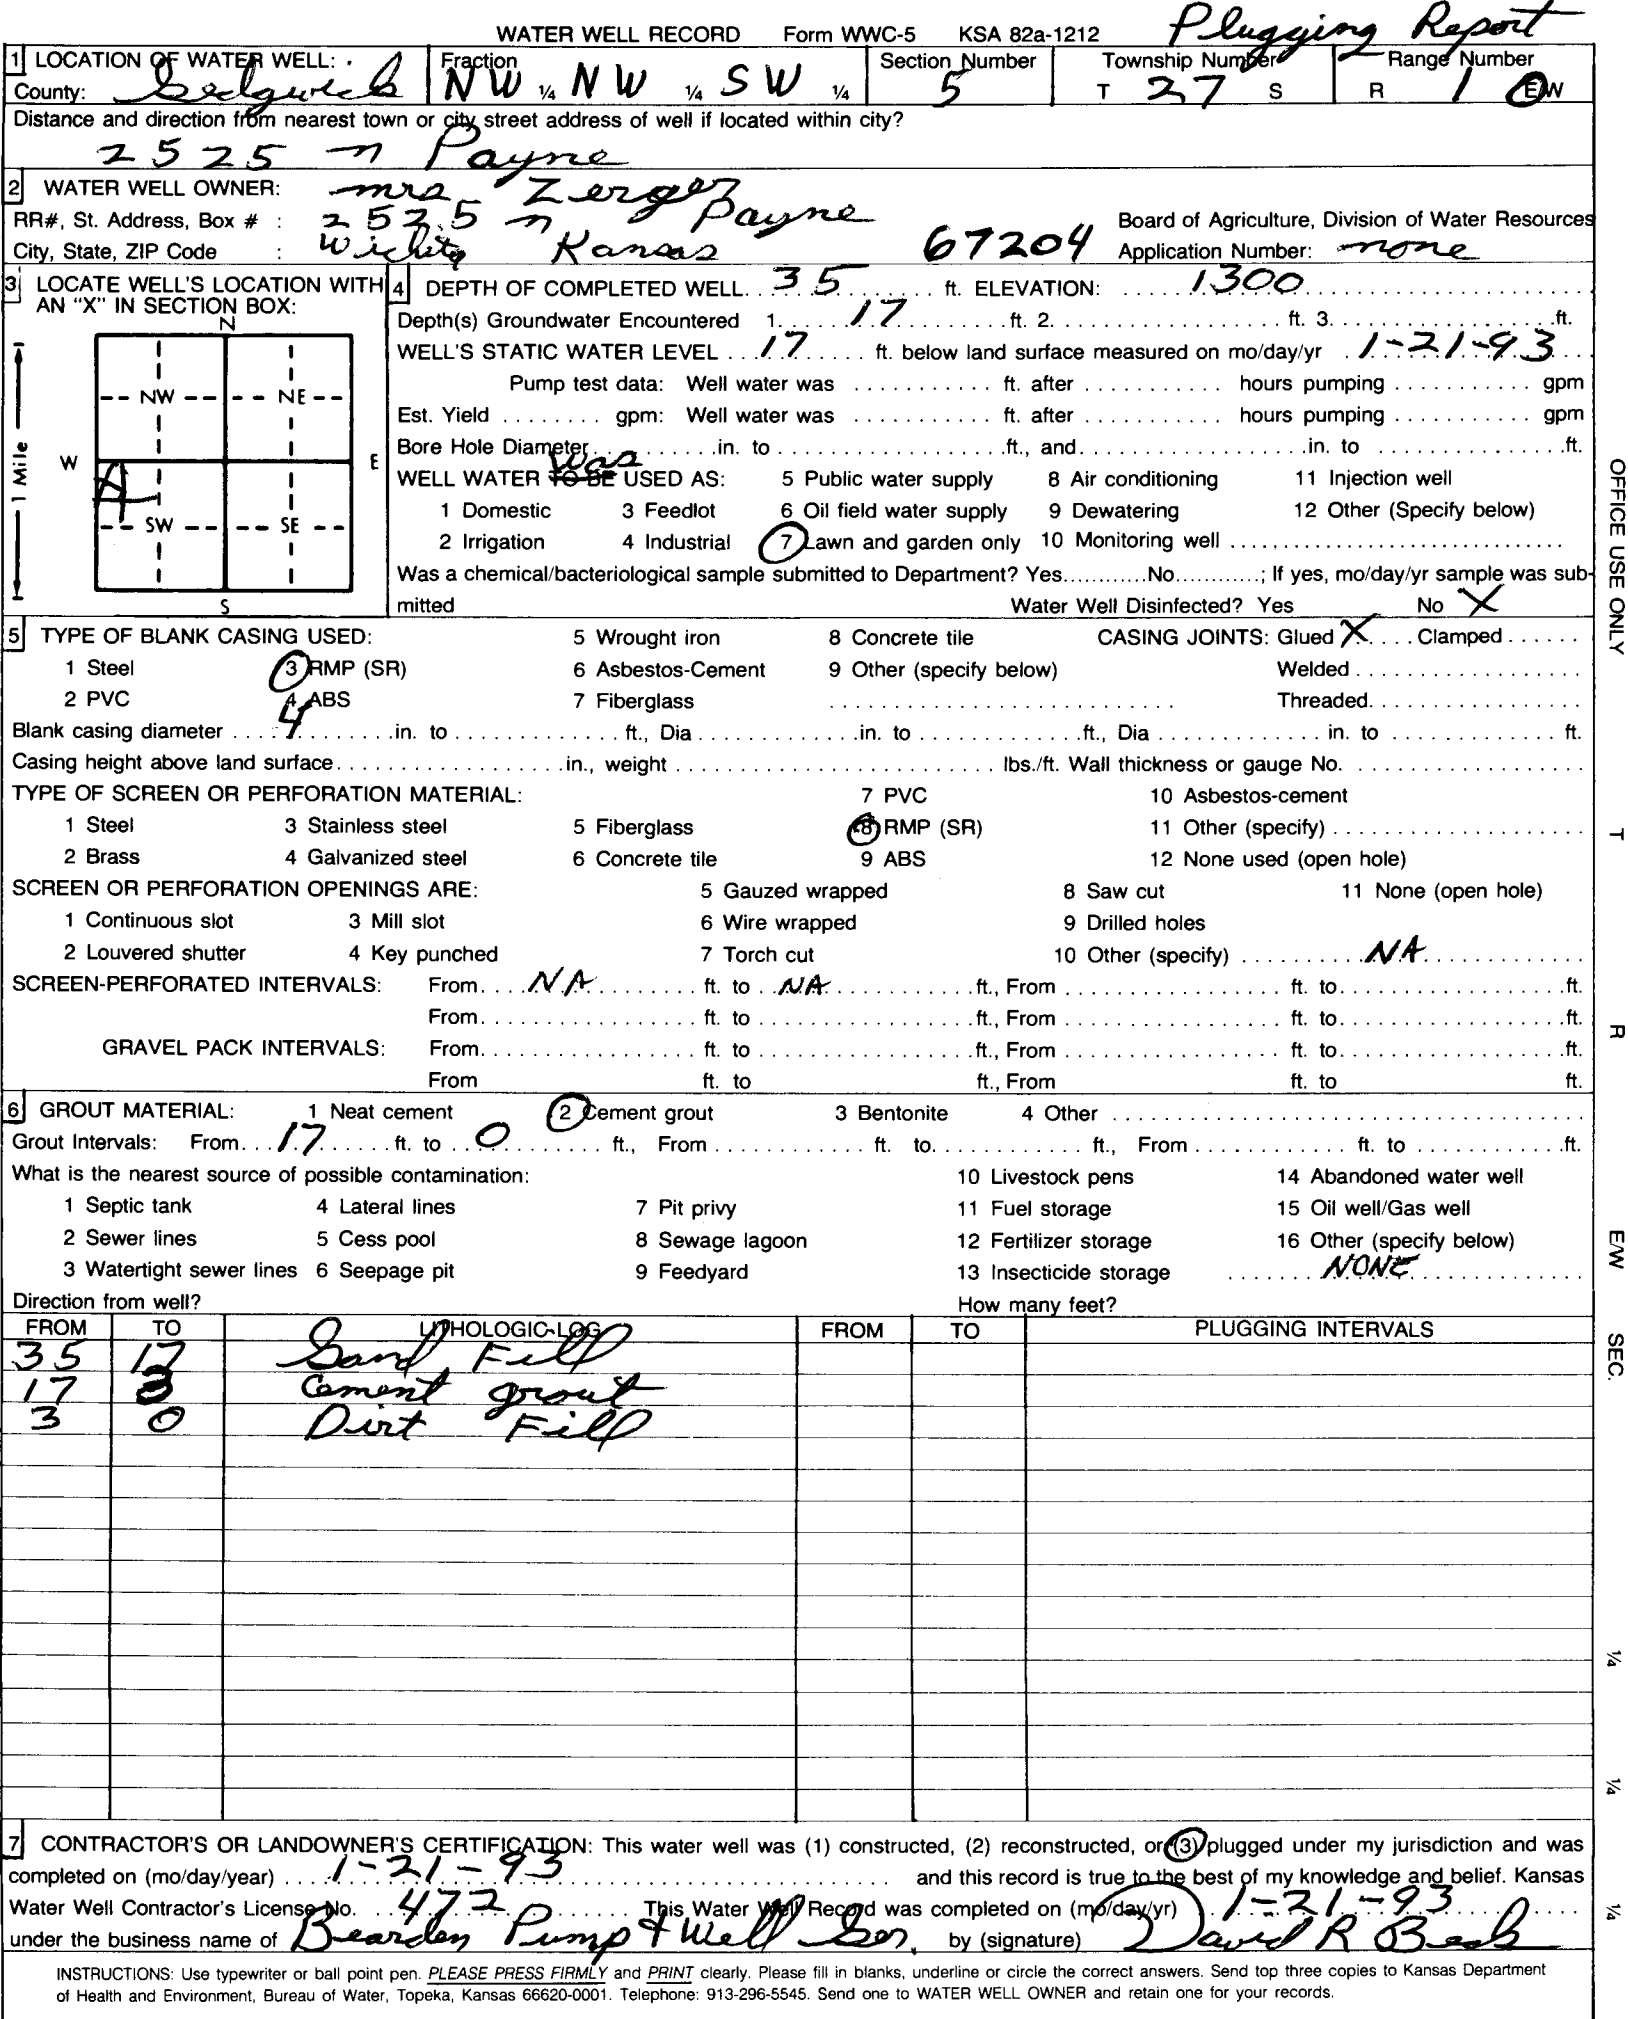 WATER WELL RECORD Form WWC-5 KSA 82a-1212 Plugging Report
1 LOCATION OF WATER WELL: Fraction Section Number Township Number Range Number
County: Sedgwick NW ¼ NW ¼ SW ¼ 5 T 27 S R 1 E/W
Distance and direction from nearest town or city street address of well if located within city?
2525 n Payne
2 WATER WELL OWNER: mrs Zerger
RR#, St. Address, Box # : 2525 n Payne Board of Agriculture, Division of Water Resources
City, State, ZIP Code : Wichita Kansas 67204 Application Number: none
3 LOCATE WELL'S LOCATION WITH AN "X" IN SECTION BOX:
N
NW NE
W E
SW SE
S
1 Mile
4 DEPTH OF COMPLETED WELL 35 ft. ELEVATION: 1300
Depth(s) Groundwater Encountered 1. 17 ft. 2. ft. 3. ft.
WELL'S STATIC WATER LEVEL 17 ft. below land surface measured on mo/day/yr 1-21-93
Pump test data: Well water was ft. after hours pumping gpm
Est. Yield gpm: Well water was ft. after hours pumping gpm
Bore Hole Diameter in. to ft., and in. to ft.
WELL WATER TO BE was USED AS: 5 Public water supply 8 Air conditioning 11 Injection well
1 Domestic 3 Feedlot 6 Oil field water supply 9 Dewatering 12 Other (Specify below)
2 Irrigation 4 Industrial 7 Lawn and garden only 10 Monitoring well
Was a chemical/bacteriological sample submitted to Department? Yes No ; If yes, mo/day/yr sample was sub-
mitted Water Well Disinfected? Yes No X
5 TYPE OF BLANK CASING USED: 5 Wrought iron 8 Concrete tile CASING JOINTS: Glued X Clamped
1 Steel 3 RMP (SR) 6 Asbestos-Cement 9 Other (specify below) Welded
2 PVC 4 ABS 7 Fiberglass Threaded
Blank casing diameter 4 in. to ft., Dia in. to ft., Dia in. to ft.
Casing height above land surface in., weight lbs./ft. Wall thickness or gauge No.
TYPE OF SCREEN OR PERFORATION MATERIAL: 7 PVC 10 Asbestos-cement
1 Steel 3 Stainless steel 5 Fiberglass 8 RMP (SR) 11 Other (specify)
2 Brass 4 Galvanized steel 6 Concrete tile 9 ABS 12 None used (open hole)
SCREEN OR PERFORATION OPENINGS ARE: 5 Gauzed wrapped 8 Saw cut 11 None (open hole)
1 Continuous slot 3 Mill slot 6 Wire wrapped 9 Drilled holes
2 Louvered shutter 4 Key punched 7 Torch cut 10 Other (specify) NA
SCREEN-PERFORATED INTERVALS: From NA ft. to NA ft., From ft. to ft.
From ft. to ft., From ft. to ft.
GRAVEL PACK INTERVALS: From ft. to ft., From ft. to ft.
From ft. to ft., From ft. to ft.
6 GROUT MATERIAL: 1 Neat cement 2 Cement grout 3 Bentonite 4 Other
Grout Intervals: From 17 ft. to 0 ft., From ft. to ft., From ft. to ft.
What is the nearest source of possible contamination: 10 Livestock pens 14 Abandoned water well
1 Septic tank 4 Lateral lines 7 Pit privy 11 Fuel storage 15 Oil well/Gas well
2 Sewer lines 5 Cess pool 8 Sewage lagoon 12 Fertilizer storage 16 Other (specify below)
3 Watertight sewer lines 6 Seepage pit 9 Feedyard 13 Insecticide storage NONE
Direction from well? How many feet?
FROM TO LITHOLOGIC LOG FROM TO PLUGGING INTERVALS
35 17 Sand Fill
17 3 Cement grout
3 0 Dirt Fill
7 CONTRACTOR'S OR LANDOWNER'S CERTIFICATION: This water well was (1) constructed, (2) reconstructed, or (3) plugged under my jurisdiction and was
completed on (mo/day/year) 1-21-93 and this record is true to the best of my knowledge and belief. Kansas
Water Well Contractor's License No. 472 This Water Well Record was completed on (mo/day/yr) 1-21-93
under the business name of Bearden Pump & Well Ser. by (signature) David R
INSTRUCTIONS: Use typewriter or ball point pen. PLEASE PRESS FIRMLY and PRINT clearly. Please fill in blanks, underline or circle the correct answers. Send top three copies to Kansas Department
of Health and Environment, Bureau of Water, Topeka, Kansas 66620-0001. Telephone: 913-296-5545. Send one to WATER WELL OWNER and retain one for your records.
OFFICE USE ONLY
T
R
E/W
SEC.
¼
¼
¼